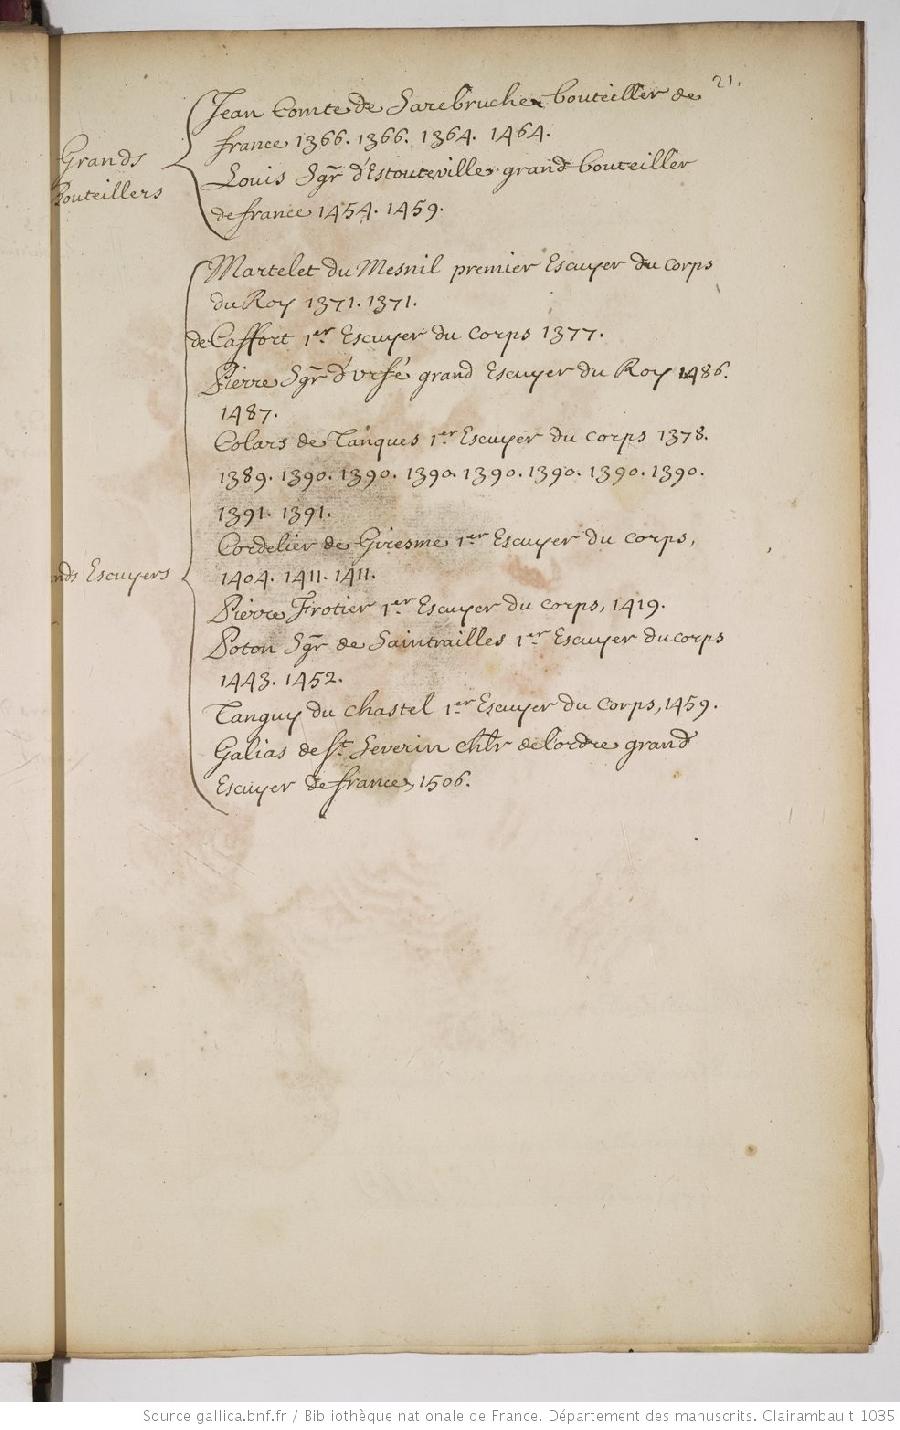 21.
Grands
Bouteillers
Jean Comte de Sarebruche bouteiller de
france 1366. 1366. 1364. 1464.
Louis Sgr d'Estouteville grand bouteiller
de france 1454. 1459.
nds Escuyers
Martelet du Mesnil premier Escuyer du corps
du Roy 1371. 1371.
de Caffort 1er Escuyer du corps 1377.
Pierre Sgr d'Urfé grand Escuyer du Roy 1486.
1487.
Colars de Tanques 1er Escuyer du corps 1378.
1389. 1390. 1390. 1390. 1390. 1390. 1390. 1390.
1391. 1391.
Cordelier de Giresme 1er Escuyer du corps,
1404. 1411. 1411.
Pierre Frotier 1er Escuyer du corps, 1419.
Poton Sgr de Saintrailles 1er Escuyer du corps
1443. 1452.
Tanguy du chastel 1er Escuyer du corps, 1459.
Galias de St Severin chlr de l'ordre grand
Escuyer de france 1506.
Source gallica.bnf.fr / Bibliothèque nationale de France. Département des manuscrits. Clairambault 1035